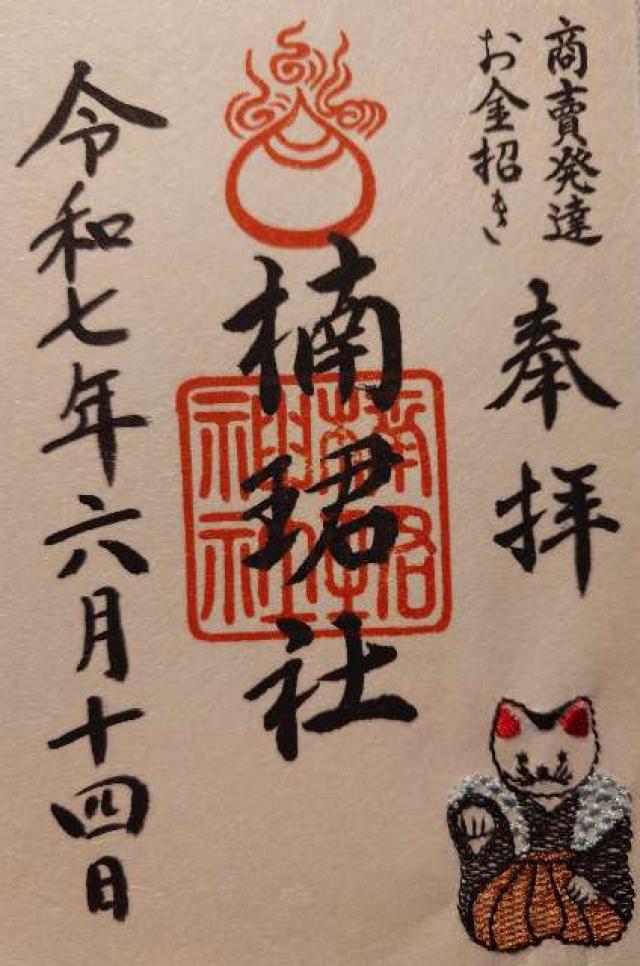 商賣発達
お金招き
奉拝
楠珺社
令和七年六月十四日